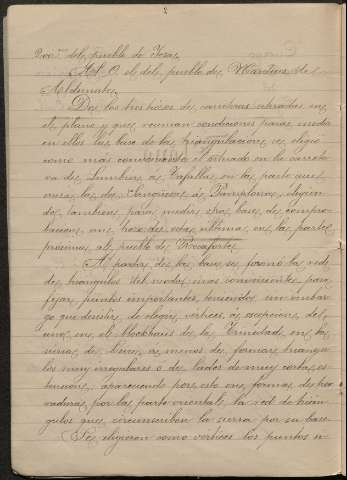 del pueblo de Yesa.
Al O. el del pueblo de Martinez de
Aldunate.
De los tres trozos de carreteras situados en
el plano y que reunian condiciones para medir
en ellos las base de la triangulacion se eligió
como mas conveniente el situado en la carrete
ra de Lumbier á Tafalla en la parte que
une la de Sangüesa á Pamplona, eligien
do, tambien, para medir otra base de compro
bacion, un trozo de esta ultima, en la parte
próxima al pueblo de Rocaforte.
A partir de la base se formó la red
de triangulos del modo mas conveniente para
fijar puntos importantes teniendo sin embar
go que desistir de elegir vértices, á escepcion del
uno, en el Blockhaus de la Trinidad, en la
sierra de Leire, á menos de formar triangu
los muy irregulares o de lados de muy corta es
tension, apareciendo por esto en forma de her
radura, por la parte oriental, la red de trián
gulos que circunscriben la sierra por su base.
Se eligieron como vertices los puntos